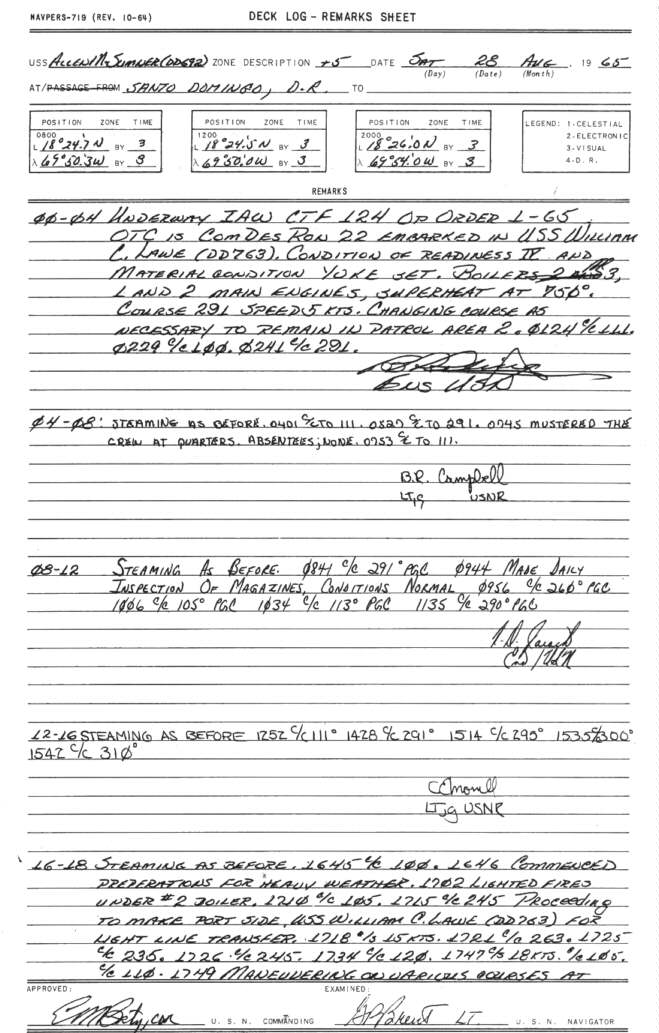 NAVPERS-719 (REV. 10-64) DECK LOG – REMARKS SHEET
USS ALLEN M. SUMNER (DD692) ZONE DESCRIPTION +5 DATE SAT 28 AUG 19 65
(Day) (Date) (Month)
AT/PASSAGE FROM SANTO DOMINGO, D.R. TO
POSITION ZONE TIME POSITION ZONE TIME POSITION ZONE TIME LEGEND: 1-CELESTIAL
0800 1200 2000 2-ELECTRONIC
L 18°24.7N BY 3 L 18°24.5N BY 3 L 18°26.0N BY 3 3-VISUAL
λ 69°50.3W BY 3 λ 69°50.0W BY 3 λ 69°54.0W BY 3 4-D. R.
REMARKS
00-04 UNDERWAY IAW CTF 124 OP ORDER 1-65
OTC IS COMDESRON 22 EMBARKED IN USS WILLIAM
C. LAWE (DD763). CONDITION OF READINESS IV AND
MATERIAL CONDITION YOKE SET. BOILERS 3,
1 AND 2 MAIN ENGINES, SUPERHEAT AT 750°.
COURSE 291 SPEED 5 KTS. CHANGING COURSE AS
NECESSARY TO REMAIN IN PATROL AREA 2. 0124 C/C 111.
0229 C/C 100. 0241 C/C 291.
ENS USN
04-08: STEAMING AS BEFORE. 0401 C/C TO 111. 0527 C/C TO 291. 0745 MUSTERED THE
CREW AT QUARTERS. ABSENTEES; NONE. 0753 C/C TO 111.
B.R. Campbell
LTjg USNR
08-12 STEAMING AS BEFORE. 0841 C/C 291° PGC 0944 MADE DAILY
INSPECTION OF MAGAZINES, CONDITIONS NORMAL 0956 C/C 260° PGC
1006 C/C 105° PGC 1034 C/C 113° PGC 1135 C/C 290° PGC
12-16 STEAMING AS BEFORE 1252 C/C 111° 1428 C/C 291° 1514 C/C 295° 1535 C/C 300°
1542 C/C 310°
LTjg USNR
16-18 STEAMING AS BEFORE. 1645 C/C 100. 1646 COMMENCED
PREPERATIONS FOR HEAVY WEATHER. 1702 LIGHTED FIRES
UNDER #2 BOILER. 1710 C/C 105. 1715 C/C 245 PROCEEDING
TO MAKE PORT SIDE, USS WILLIAM C. LAWE (DD763) FOR
LIGHT LINE TRANSFER. 1718 C/S 15 KTS. 1721 C/C 263. 1725
C/C 235. 1726 C/C 245. 1734 C/C 120. 1747 C/S 18KTS. C/C 105.
C/C 110. 1749 MANEUVERING ON VARIOUS COURSES AT
APPROVED: EXAMINED:
U. S. N. COMMANDING LT. U. S. N. NAVIGATOR